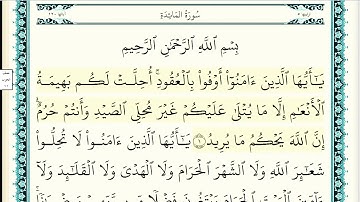 سُورَةُ المَائِدَةِ
بِسْمِ ٱللَّهِ ٱلرَّحْمَٰنِ ٱلرَّحِيمِ
يَٰٓأَيُّهَا ٱلَّذِينَ ءَامَنُوٓا۟ أَوْفُوا۟ بِٱلْعُقُودِ ۚ أُحِلَّتْ لَكُم بَهِيمَةُ
ٱلْأَنْعَٰمِ إِلَّا مَا يُتْلَىٰ عَلَيْكُمْ غَيْرَ مُحِلِّى ٱلصَّيْدِ وَأَنتُمْ حُرُمٌ ۗ
إِنَّ ٱللَّهَ يَحْكُمُ مَا يُرِيدُ ١ يَٰٓأَيُّهَا ٱلَّذِينَ ءَامَنُوا۟ لَا تُحِلُّوا۟
شَعَٰٓئِرَ ٱللَّهِ وَلَا ٱلشَّهْرَ ٱلْحَرَامَ وَلَا ٱلْهَدْىَ وَلَا ٱلْقَلَٰٓئِدَ وَلَآ